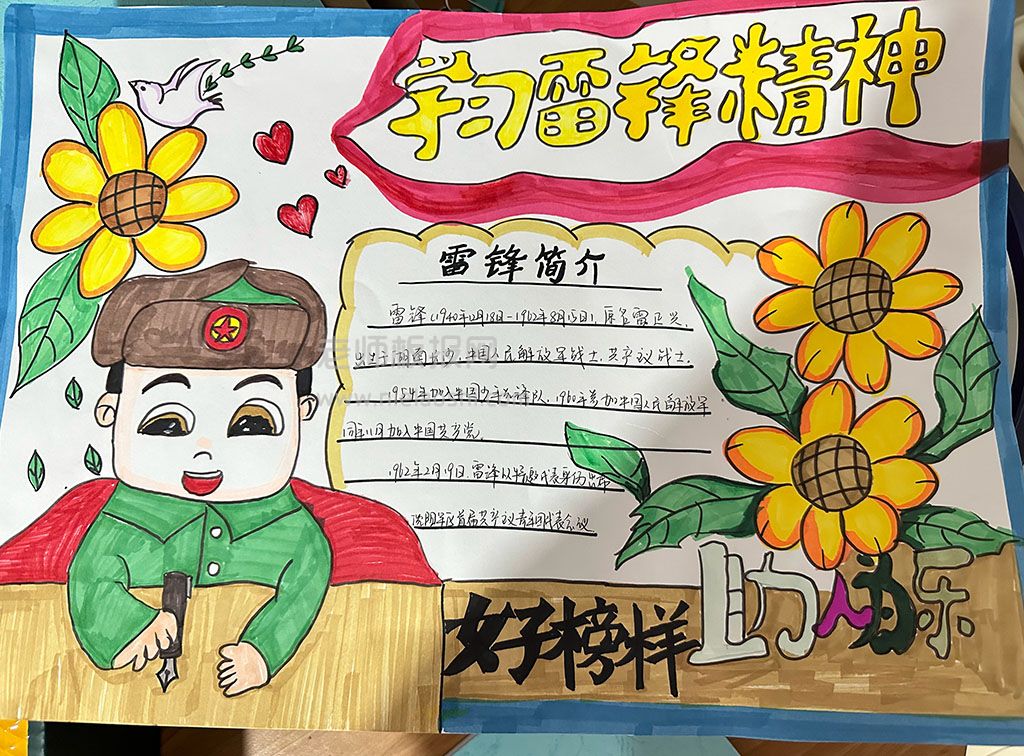 学习雷锋精神
雷锋简介
雷锋(1940年12月18日-1962年8月15日),原名雷正兴,
出生于湖南长沙,中国人民解放军战士,共产主义战士。
1954年加入中国少年先锋队,1960年参加中国人民解放军
同年11月加入中国共产党。
1962年2月19日,雷锋以特邀代表身份出席
沈阳军区首届共产主义青年团代表会议
好榜样 助人为乐
老师板报网